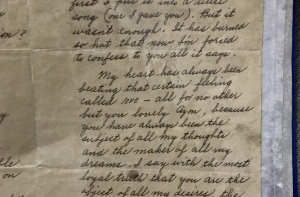 first I put it into a little
song (one I gave you). But it
wasn't enough. It has burned
so hot that now I'm forced
to confess to you all it says.
My heart has always been
beating that certain feeling
called love – all for no other
but you lovely Lyn, because
you have always been the
subject of all my thoughts
and the maker of all my
dreams. I say with the most
loyal truth that you are the
object of all my desires, the
on?
y
ble
on